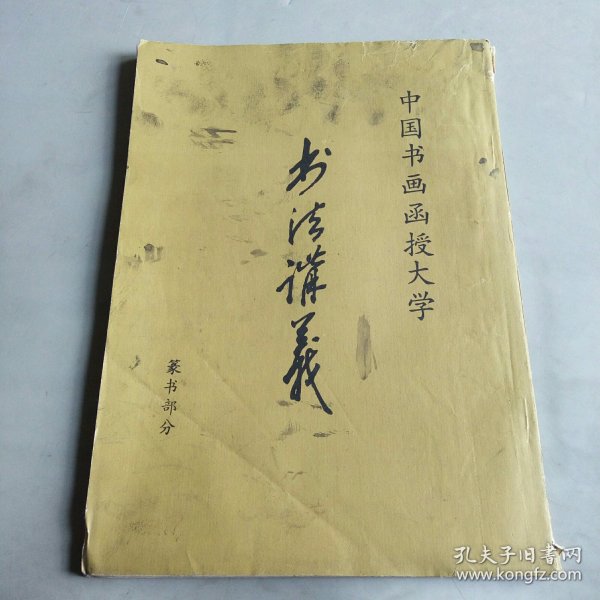 中国书画函授大学
书法講義
篆书部分
孔夫子旧書网
www.kongfz.com